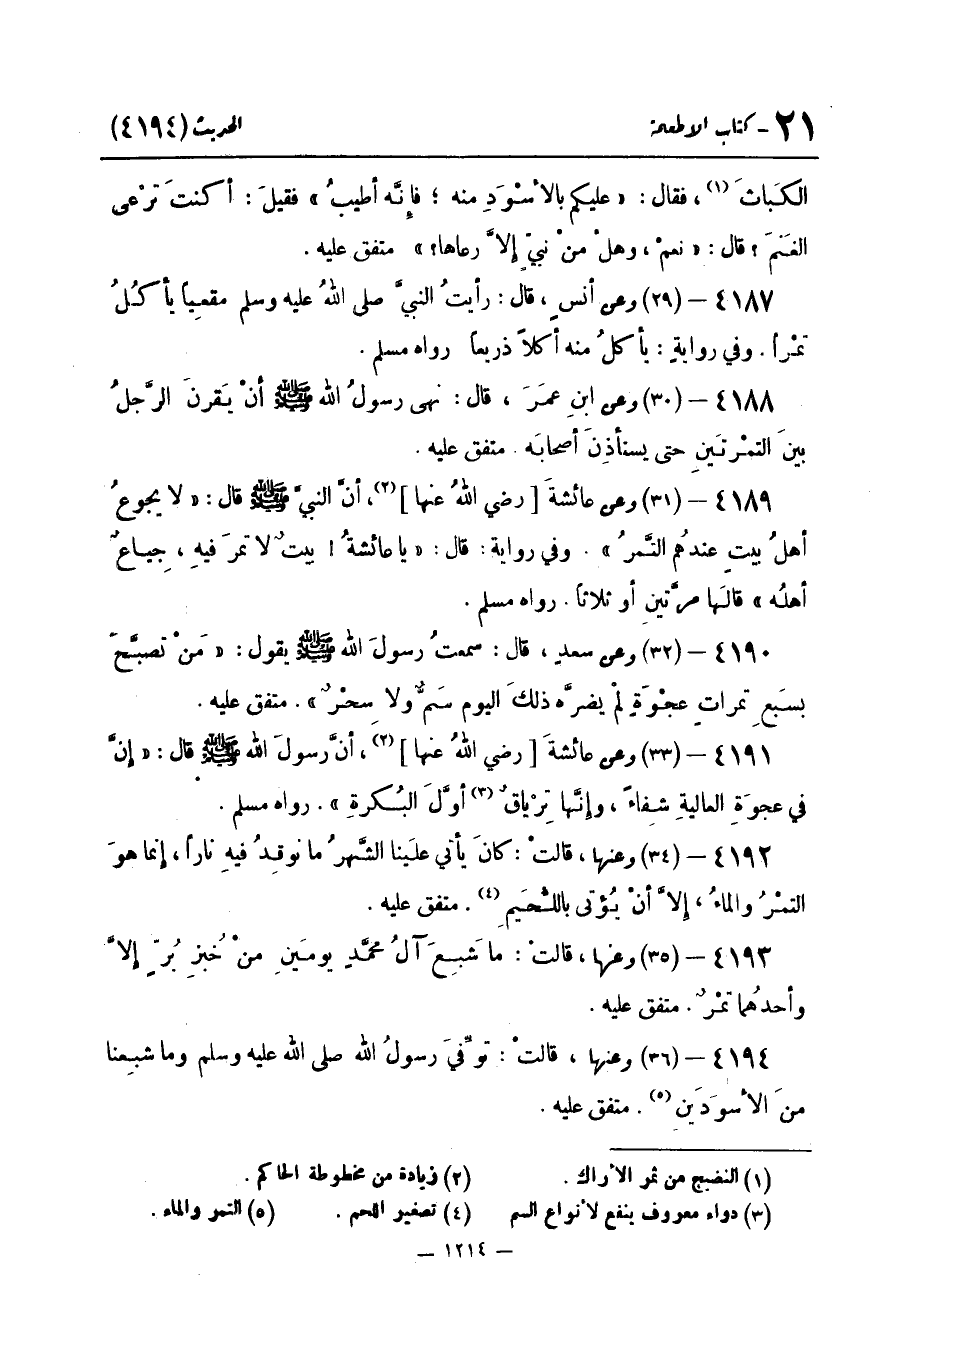 ٢١- كتاب الاطعمة الحديث (٤١٩٤)
الكَبَاثَ (١) ، فقال : « عليكم بالأسْوَدِ منه ؛ فإِنَّه أطيبُ » فقيلَ : أكنتَ تَرْعى
الغَنَمَ ؟ قال : « نعمْ ، وهلْ منْ نبيٍّ إلاَّ رعاها؟ » متفق عليه .
٤١٨٧ – (٢٩) وعن أنسٍ ، قال : رأيتُ النبيَّ صلى اللهُ عليه وسلم مقعياً يأكُلُ
تمْراً . وفي روايةٍ : يأكلُ منه أكلاً ذريعاً رواه مسلم .
٤١٨٨ – (٣٠) وعن ابنِ عمَرَ ، قال : نهى رسولُ الله ﷺ أنْ يَقرنَ الرَّجلُ
بينَ التمْرتَينِ حتى يستأذِنَ أصحابَه . متفق عليه .
٤١٨٩ – (٣١) وعن عائشةَ [ رضي اللهُ عنها ] (٢)، أنَّ النبيَّ ﷺ قال : « لا يجوعُ
أهلُ بيتٍ عندهُم التَّمرُ » . وفي رواية : قال : « يا عائشةُ ! بيتٌ لا تمرَ فيهِ ، جِياعٌ
أهلُه » قالَها مرَّتينِ أو ثلاثاً . رواه مسلم .
٤١٩٠ – (٣٢) وعن سعدٍ ، قال : سمعتُ رسولَ الله ﷺ يقول : « مَنْ تصبَّحَ
بسَبعِ تمراتٍ عجْوَةٍ لمْ يضرَّه ذلكَ اليوم سَمٌّ ولا سِحْرٌ » . متفق عليه .
٤١٩١ – (٣٣) وعن عائشةَ [ رضي اللهُ عنها ] (٢) ، أنَّ رسولَ الله ﷺ قال : « إنَّ
في عجوَةِ العاليةِ شفاءً ، وإنَّها تِرْياقٌ (٣) أوَّلَ البُكرةِ » . رواه مسلم .
٤١٩٢ – (٣٤) وعنها ، قالتْ : كانَ يأتي علَينا الشَّهرُ ما نوقِدُ فيهِ ناراً ، إنما هوَ
التمْرُ والماءُ ، إلاَّ أنْ يُؤتى باللُّحَيمِ (٤) . متفق عليه .
٤١٩٣ – (٣٥) وعنها ، قالتْ : ما شَبِعَ آلُ محمَّدٍ يومَينِ منْ خُبزِ بُرٍّ إلاَّ
وأحدهُما تمْرٌ . متفق عليه .
٤١٩٤ – (٣٦) وعنها ، قالتْ : تُوُفِّيَ رسولُ الله صلى الله عليه وسلم وما شبعنا
منَ الأسوَدَينِ (٥) . متفق عليه .
(١) النضيج من ثمر الأراك . (٢) زيادة من مخطوطة الحاكم .
(٣) دواء معروف ينفع لأنواع السم (٤) تصغير اللحم . (٥) التمر والماء .
– ١٢١٤ –